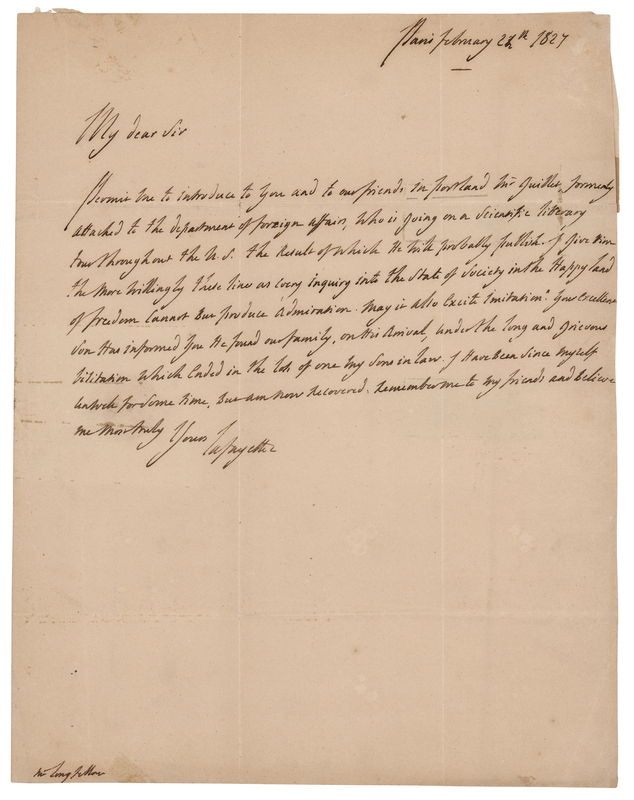 Paris february 2 th 1827
My dear Sir
Permit me to introduce to You and to our friends in portland Mr Guillet, formerly
attached to the department of foreign affairs, Who is going on a Scientific literary
tour throughout the U.S. the Result of which He will probably publish. I give Him
the More Willingly these line as every inquiry into the State of Society in the Happy land
of freedom Cannot But produce Admiration. May it also Excite imitation. Your Excellent
Son Has informed You He found our family, on His Arrival, under the long and grievous
Visitation Which Ended in the loss of one my Sons in law. I Have Been Since myself
unwell for Some time, But am now Recovered. Remember me to my friends and Believe
me Most truly Yours
Lafayette
Mr Longfellow